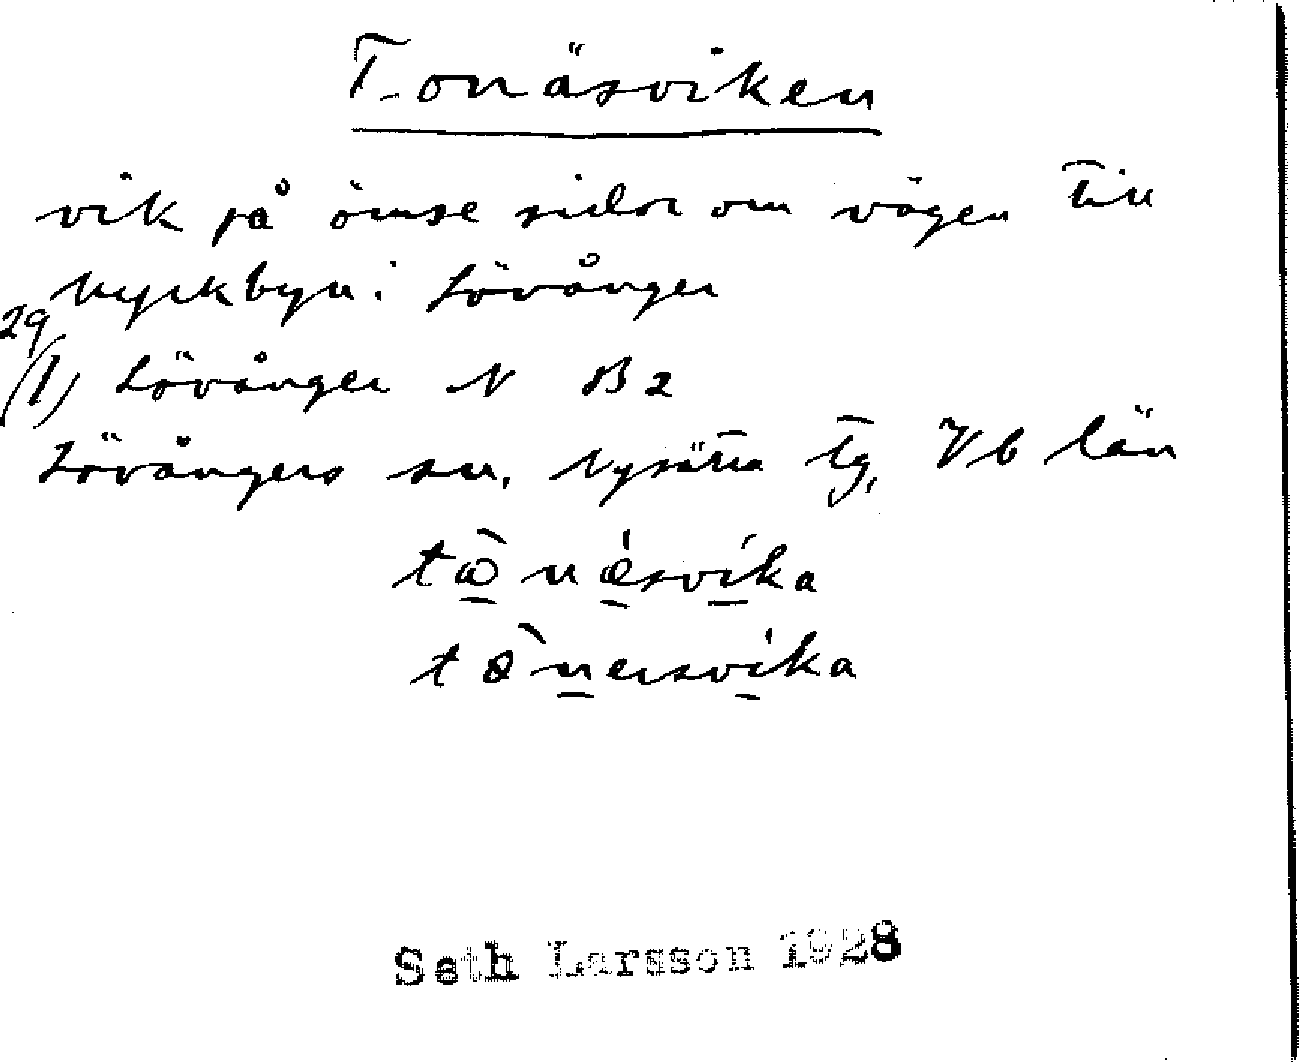 Tonäsviken
vik på ömse sidor om vägen till
Kyrkbyn i Lövånger
29
(1) Lövånger N B2
Lövångers sn, Nysätra tg, Vb län
tæ̀næ´svíka
nersvíka
Seth Larsson 1928